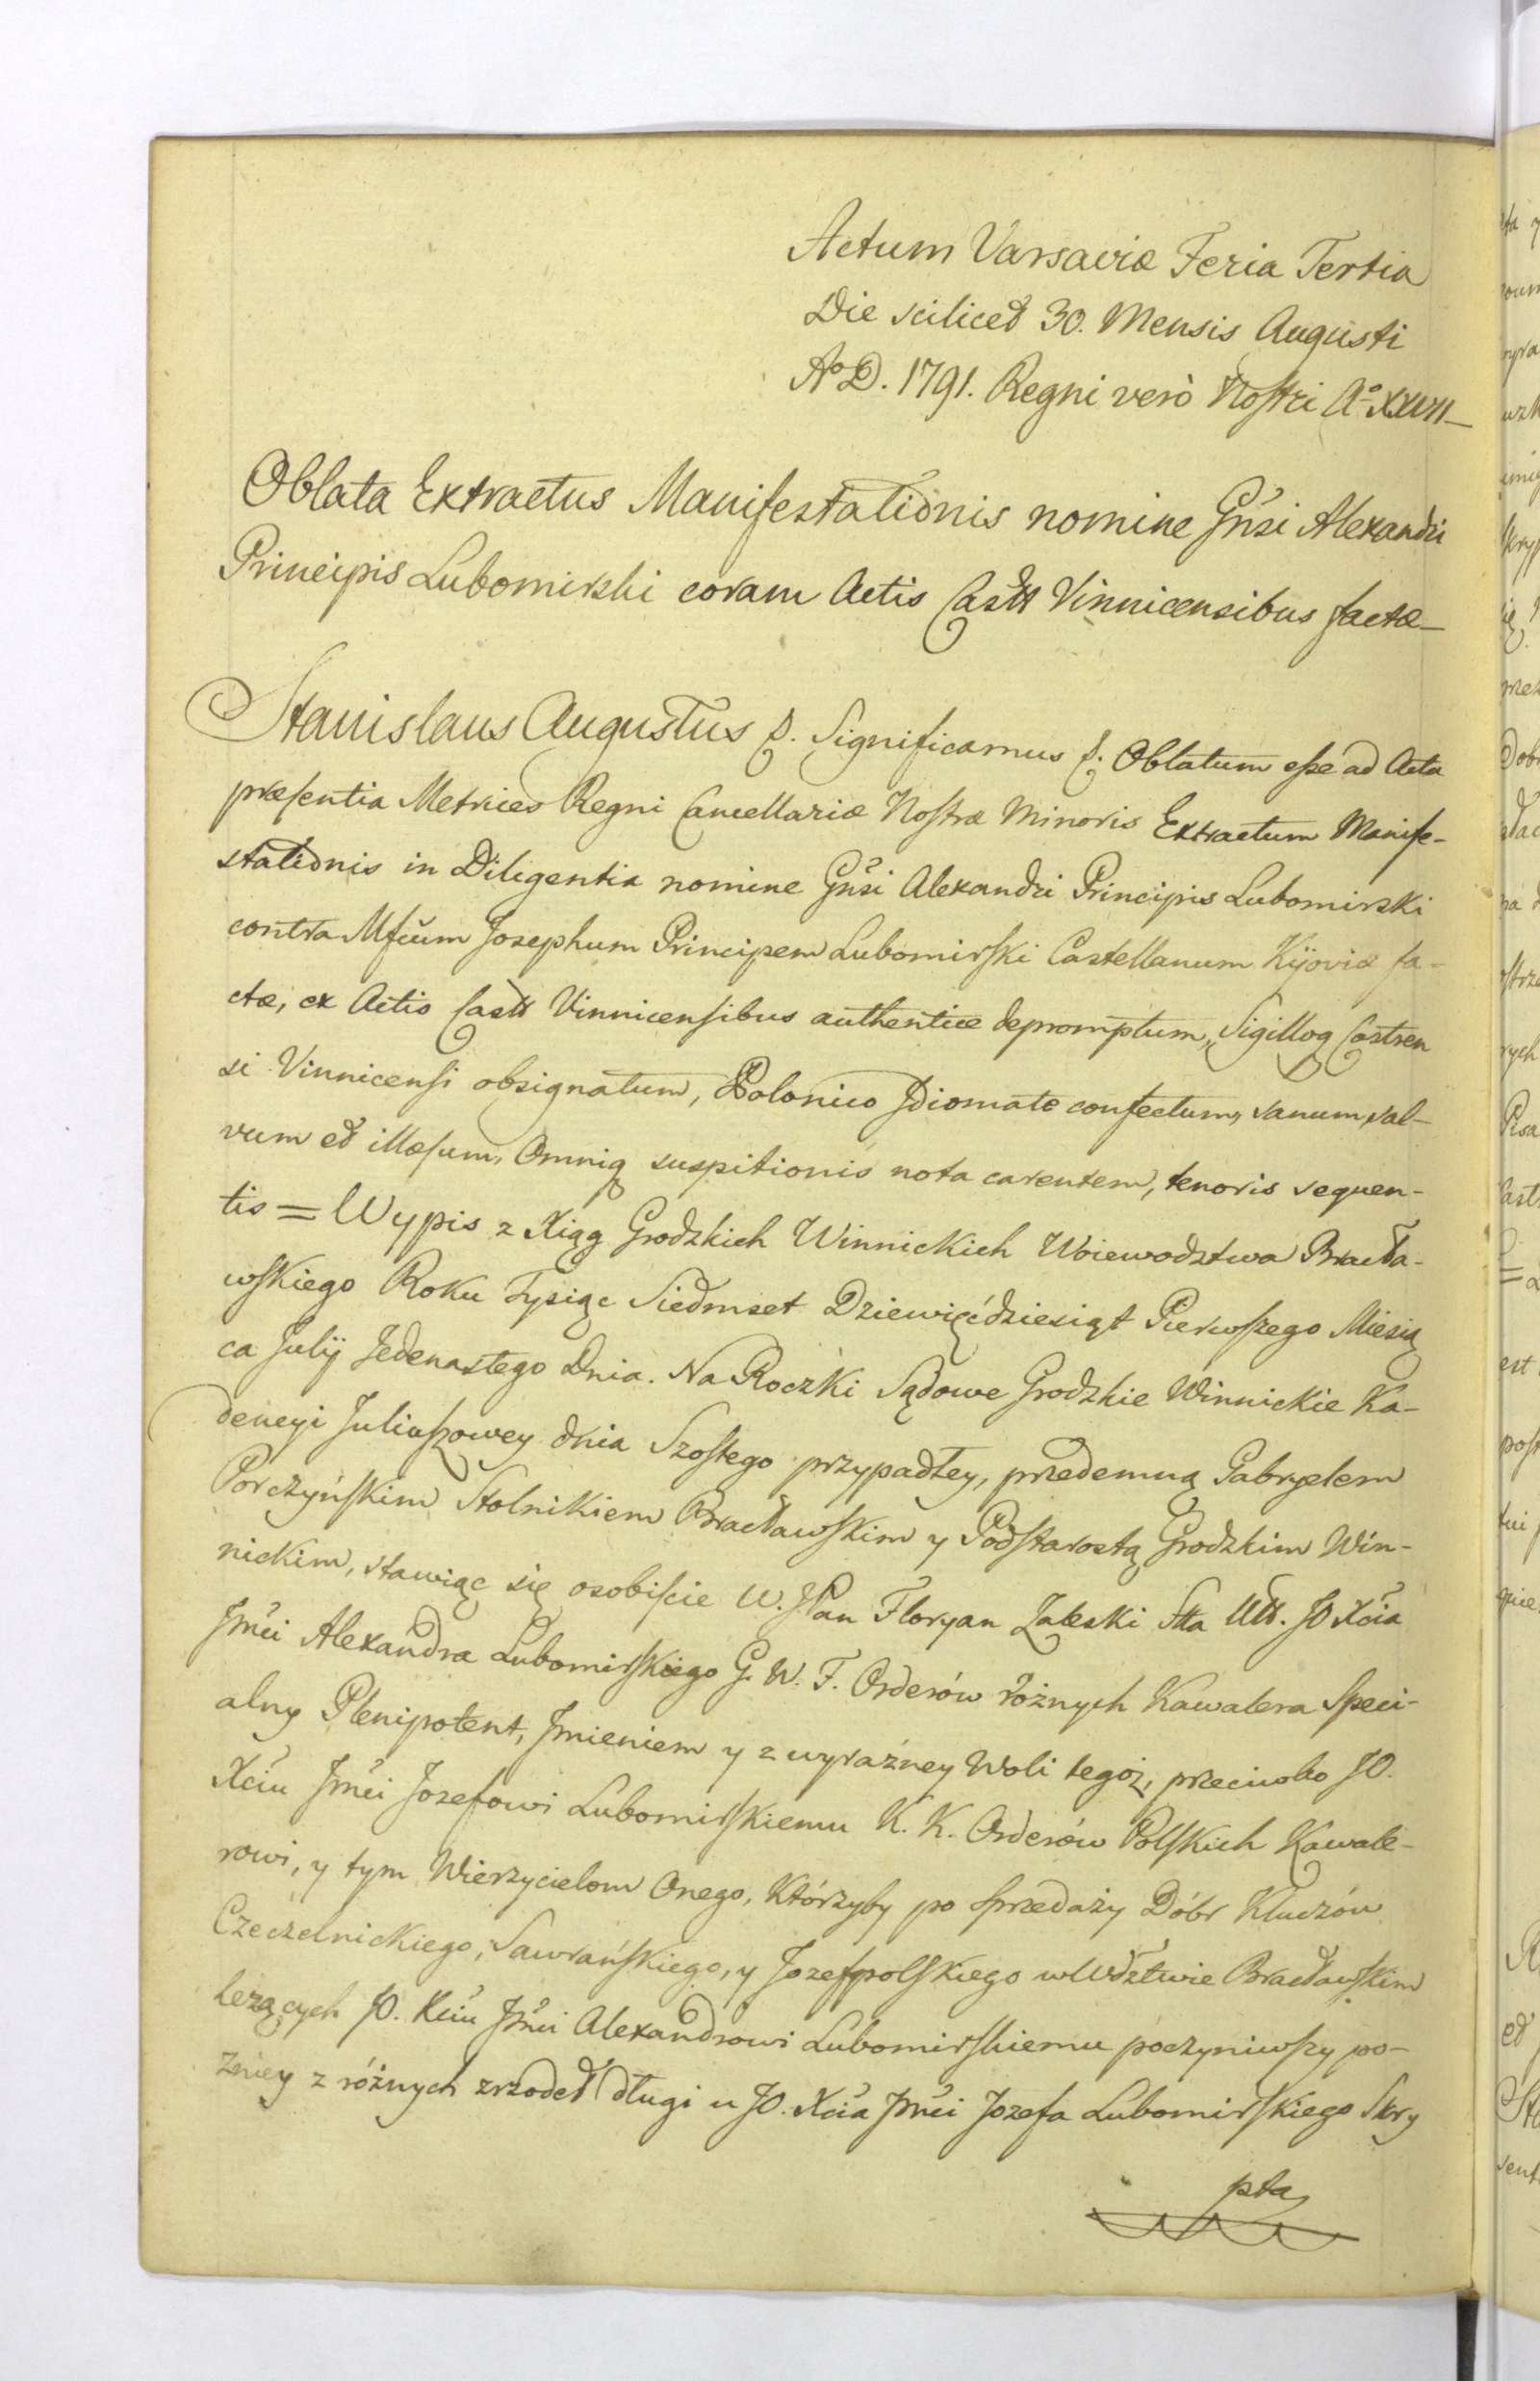 Actum Varsaviæ Feria Tertia
Die scilicet 30. Mensis Augusti
Aº D. 1791. Regni verò Nostri Aº XXVII
Oblata Extractus Manifestationis nomine Gn̄si Alexandri
Principis Lubomirski coram Actis Castr Vinnicensibus factæ
Stanislaus Augustus &. Significamus &. Oblatum esse ad Acta
præsentia Metrices Regni Cancellariæ Nostræ Minoris Extractum Manife-
stationis in Diligentia nomine Gn̄si Alexandri Principis Lubomirski
contra Mfcum Josephum Principem Lubomirski Castellanum Kijoviæ fa-
ctæ, ex Actis Castr Vinnicensibus authentice depromptum, Sigilloq Castren
si Vinnicensi obsignatum, Polonico Idiomate confectum, sanum, sal-
vum et illæsum, Omniq suspitionis nota carentem, tenoris sequen-
tis = Wypis z Xiąg Grodzkich Winnickich Woiewodztwa Bracła-
wskiego Roku Tysiąc Siedmset Dziewięćdziesiąt Pierwszego Miesią
ca Julij Jedenastego Dnia. Na Roczki Sądowe Grodzkie Winnickie Ka-
dencyi Juliuszowey dnia Szostego przypadłey, przedemną Gabryelem
Porczyńskim Stolnikiem Bracławskim y Podstarostą Grodzkim Win-
nickim, stawiąc się osobiście W. JPan Floryan Zaleski Stta Utt. JO Xcia
Jmci Alexandra Lubomirskiego G. W. F. Orderów rożnych Kawalera Speci-
alny Plenipotent, Jmieniem y z wyraźney Woli tegoż, przeciwko JO.
Xciu Jmci Jozefowi Lubomirskiemu K. K. Orderów Polskich Kawale-
rowi, y tym Wierzycielom Onego, Którzyby po sprzedaży Dóbr Kluczów
Czeczelnickiego, Sawrańskiego, y Jozefpolskiego w Wdztwie Bracławskim
leżących JO. Xciu Jmci Alexandrowi Lubomirskiemu poczyniwszy po-
źniey z różnych zrzodeł długi u JO. Xcia Jmci Jozefa Lubomirskiego Skry
pta